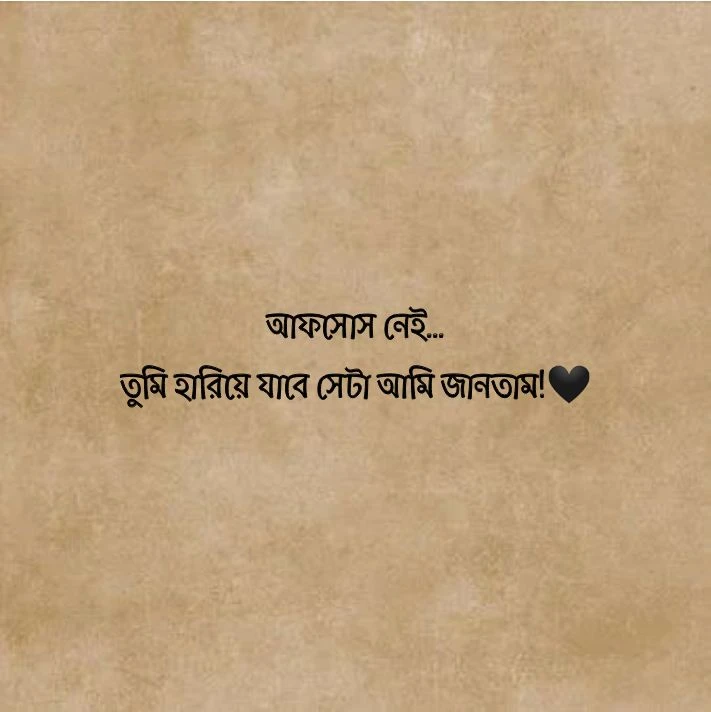 আফসোস নেই...
তুমি হারিয়ে যাবে সেটা আমি জানতাম!🖤